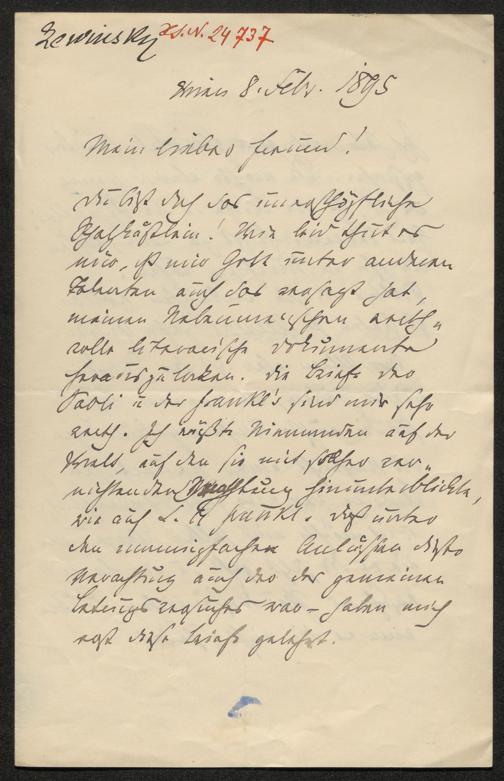 Lewinsky H.I.N. 24737
Wien 8. Febr. 1895
Mein lieber Freund!
Du bist doch das unerschöpfliche
Schatzkästlein! Wie leid thut es
mir, daß mir Gott unter anderen
Talenten auch das versagt hat,
meinen Nebenmenschen werth-
volle literarische Dokumente
herauszulocken. Die Briefe der
Paoli u der Frankl's sind mir sehr
werth. Ich wüßte Niemanden auf der
Welt, auf den sie mit solcher ver-
nichtenden Verachtung hinunterblickte,
wie auf L. A Frankl. Daß unter
den mannigfachen Anlässen dieser
Verachtung auch der des gemeinen
war – haben mich
erst diese Briefe gelehrt.